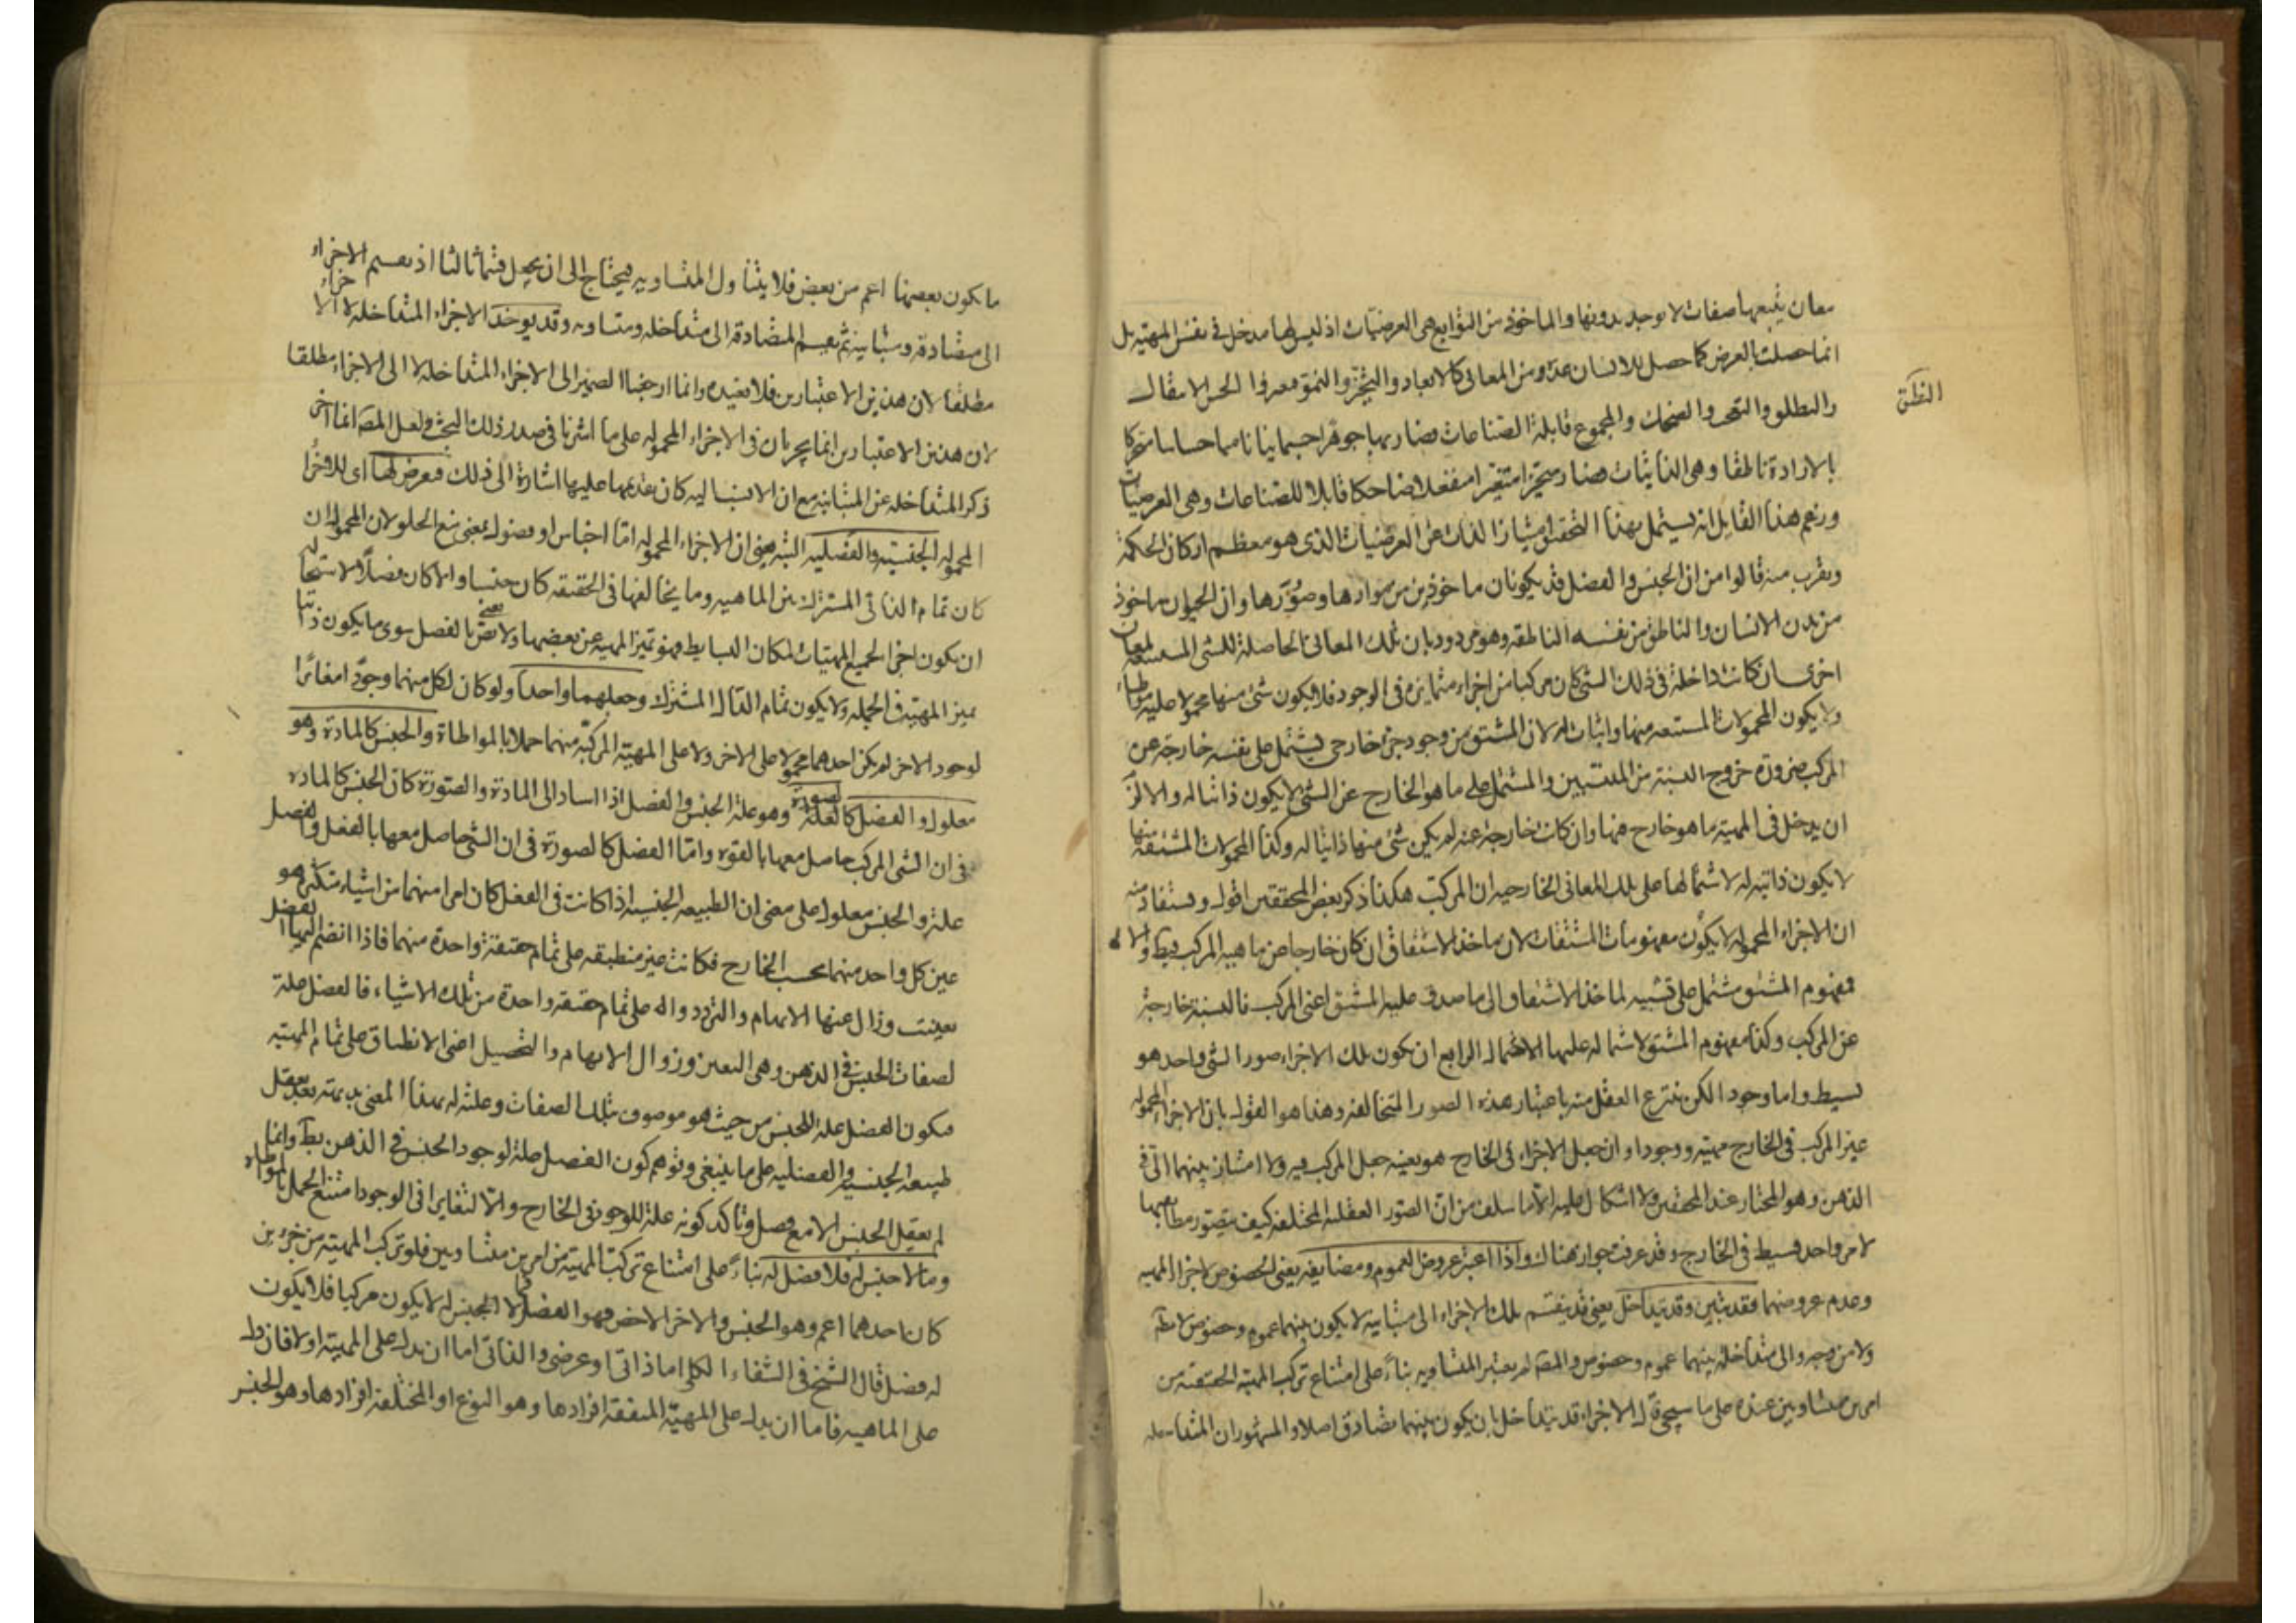 معان يتبعها صفات لا توجد بدونها والماخوذ من التوابع هى العرضيات اذ ليس لها مدخل فى نفس المهية بل
انما حصلت بالعرض كما حصل للانسان عدة من المعانى كالابعاد والتحيز والنمو معروفا الحس الانتقال
والنطق والتعجب والضحك والمجموع قابلة الصناعات فصار بها جوهرا جسمانيا ناميا حساسا متحركا
النطق
بالارادة ناطقا وهى الذاتيات فصار متحيزا متغيرا منفعلا ضاحكا قابلا للصناعات وهى العرضيات
وزعم هذا القايل انه يستمل بهذا التحقيق امتياز الذات عن العرضيات الذى هو معظم اركان الحكمة
ويقرب منه قالوا من ان الجنس والفصل قد يكونان ماخوذين من موادها وصورها وان الحيوان ماخوذ
من بدن الانسان والناطق من نفسه الناطقه وهو مردود بان تلك المعانى الحاصلة للشى المستتبعة لمعان
اخرى ان كانت داخلة فى ذلك الشى كان مركبا من اجزاء متمايزه فى الوجود فلا يكون شى منها محمولا عليه مواطاء
ولا يكون المحمولات المستتبعه منها واثبات له لان المشتق من وجود جزء خارجى يشتمل على نفسه خارجة عن
المركب ضرورة خروج النسبة من المنتسبين والمشتمل على ما هو الخارج عن الشى لا يكون ذاتيا له والا لزم
ان يدخل فى المهية ما هو خارج عنها وان كانت خارجة عنه لم يكن شى منها ذاتيا له وكذا المحمولات المشتقة منها
لا يكون ذاتيه له لاشتمالها على تلك المعانى الخارجيه ان المركب هكذا ذكر بعض المحققين اقول ويستفاد منه
ان الاجزاء المحموله لا يكون مفهومات المشتقات لان ماخذ الاشتقاق ان كان خارجا عن ماهيه المركب فبط والا
فمفهوم المشتق مشتمل على تشبيه لما خذ الاشتقاق الى ما صدق عليه المشتق اعنى المركب فالنسبة خارجة
عن المركب وكذا مفهوم المشتق لاشتماله عليها الاحتمال الرابع ان يكون تلك الاجزاء صور الشى واحد هو
بسيط واما وجودا لكن ينتزع العقل منه باعتبار هذه الصور المتخالفه وهذا هو القول بان الاجزاء المحموله
عين المركب فى الخارج مهيته ووجودا وان جعل الاجزاء فى الخارج هو بعينه جعل المركب فيه ولا امتياز بينهما الا فى
الذهن وهو المختار عند المحققين ولا اشكال عليه الا ما سلف من ان الصور العقليه المختلفه كيف يتصور مطابقتها
لامر واحد بسيط فى الخارج وقد عرفت جوابه هناك واذا اعتبر عروض العموم ومضايفه يعنى الخصوص لاجزاء المهيه
وعدم عروضهما فقد تتباين وقد تتداخل يعنى قد ينقسم تلك الاجزاء الى متباينه لا يكون بينهما عموم وخصوص لا مط
ولا من وجه والى متداخلة بينهما عموم وخصوص والمص لم يعتبر المتساويه بناء على امتناع تركب المهية الحقيقية من
امرين متساويين عنده على ما سيجى قال الاجزاء قد تتداخل بان يكون بينهما تصادق اصلا والمشهور ان المتداخله
ما يكون بعضها اعم من بعض فلا يتناول المتساويه فيحتاج الى ان يجعل قسما ثالثا اذ يقسم الاجزاء
الى متصادقة ومتباينه ثم يقسم المتصادقة الى متداخله ومتساويه وقد يوخذ الاجزاء المتداخله لا الاجزاء
مطلقا لان هذين الاعتبارين فلا تغيده وانما ارجعنا الضمير الى الاجزاء المتداخله لا الى الاجزاء مطلقا
لان هذين الاعتبارين انما يجريان فى الاجزاء المحموله على ما اشرنا فى صدر ذلك البحث ولعل المص انما اخر
ذكر المتداخله عن المتباينه مع ان الانسب اليه كان تقديمها عليها اشارة الى ذلك فيعرض لها اى للاجزاء
المحموله الجنسيه والفصليه البته يعنى ان الاجزاء المحموله اما اجناس او فصول بمعنى منع الخلو لان المحمول ان
كان تمام الذاتى المشترك بين الماهيه وما يخالفها فى الحقيقه كان جنسا والا كان فصلا لاستحالة
ان يكون اجزا لجميع المهيات لمكان البسايط فهو تميز المهيه عن بعضها ولا نعنى بالفصل سوى ما يكون ذاتيا
يميز المهيته فى الجمله ولا يكون تمام الذاتى المشترك وجعلهما واحدا ولو كان لكل منهما وجود امغائرا
لوجود الاخر لم يكن احدهما محمولا على الاخر ولا على المهية المركبة منهما حملا بالمواطاة والجنس كالمادة وهو
معلول والفصل كالصورة وهو علة الجنس والفصل اذا اسادا الى المادة والصورة كان الجنس كالماده
فى ان الشى المركب حاصل معها بالقوه واما الفصل كالصورة فى ان الشى حاصل معها بالفعل والفصل
علة والجنس معلول على معنى ان الطبيعه الجنسيه اذا كانت فى العقل كان امرا مبهما من اشياء متكثرة هو
عين كل واحد منهما بحسب الخارج فكانت غير منطبقه على تمام حقيقة واحدة منهما فاذا انضم اليها الفصل
تعينت وزال عنها الابهام والتردد وانطبقت على تمام حقيقه واحدة من تلك الاشياء فالفصل علة
لصفات الجنس فى الذهن وهى التعين وزوال الابهام والتحصيل اعنى الانطباق على تمام المهيه
فيكون الفصل علة للجنس من حيث هو موصوف بتلك الصفات وعليته له بهذا المعنى بديهية بعد تعقل
طبيعه الجنسيه والفصليه على ما ينبغى وتوهم كون الفصل علة لوجود الجنس فى الذهن بط وانما
لم يعقل الجنس الا مع فصل وتاكد كونه علة للوجود فى الخارج والا لتغايرا فى الوجود امتنع الحمل بالمواطاء
وما لا جنس له فلا فصل له بناء على امتناع تركب المهية من امرين متساويين فلو تركب المهيته من جزءين
كان احدهما اعم وهو الجنس والاخر الاخص فهو الفصل فما لا جنس له لا يكون مركبا فلا يكون
له فصل قال الشيخ فى الشفاء الكلى اما ذاتى او عرضى والذاتى اما ان يدل على المهية اولا فان دل
على الماهيه فاما ان يدل على المهية المتفقة افرادها وهو النوع او المختلفة افرادها وهو الجنس